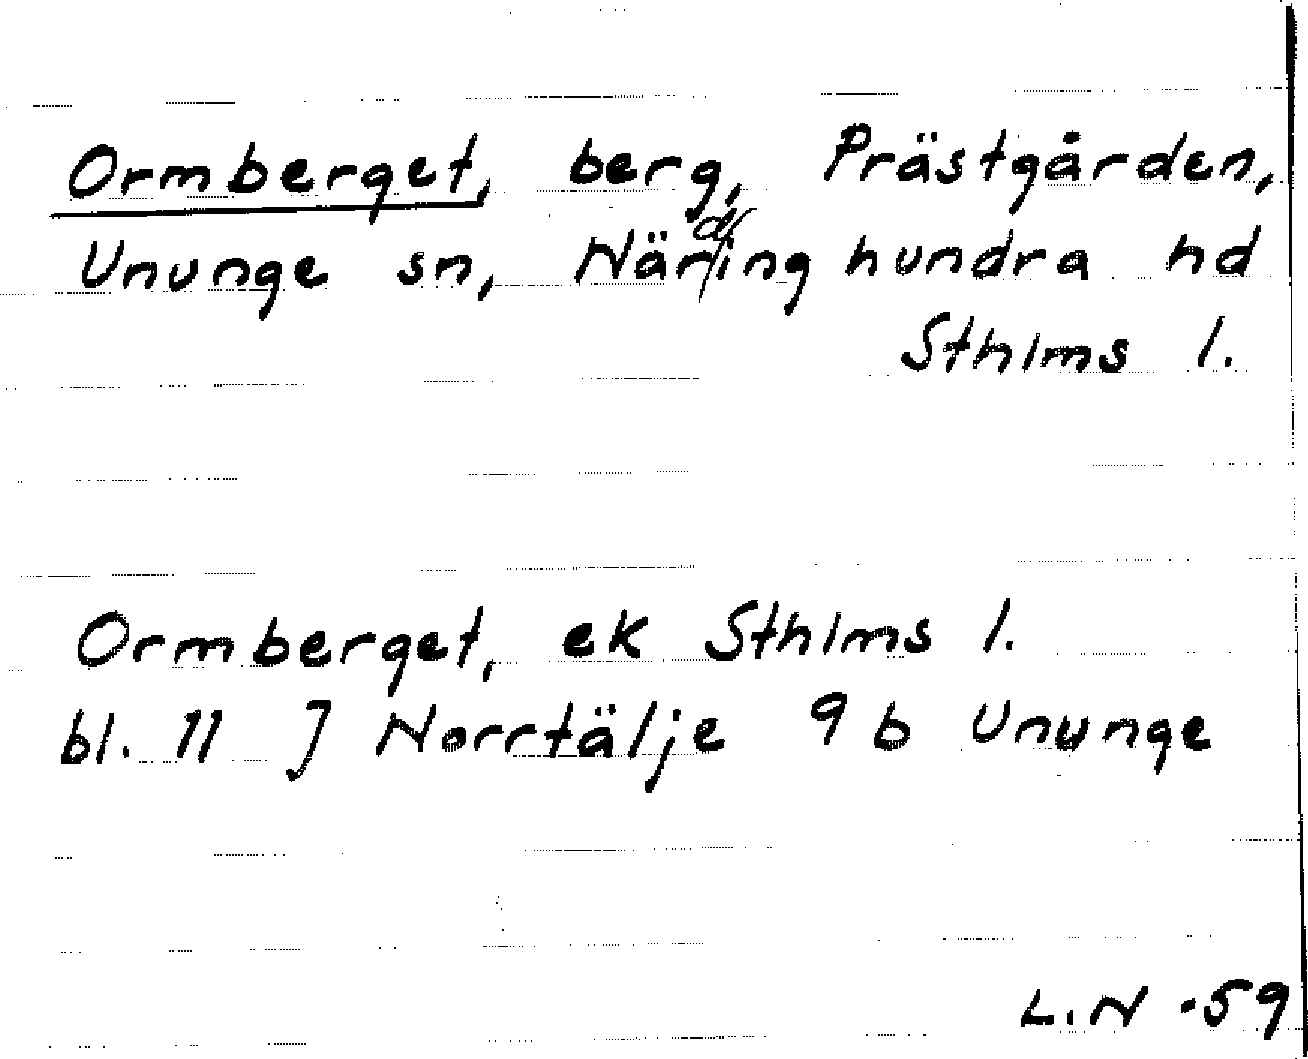 Ormberget, berg, Prästgården,
Ununge sn, Närdinghundra hd
Sthlms l.
Ormberget, ek Sthlms l.
bl. 11 J Norrtälje 9 b Ununge
L.N -59